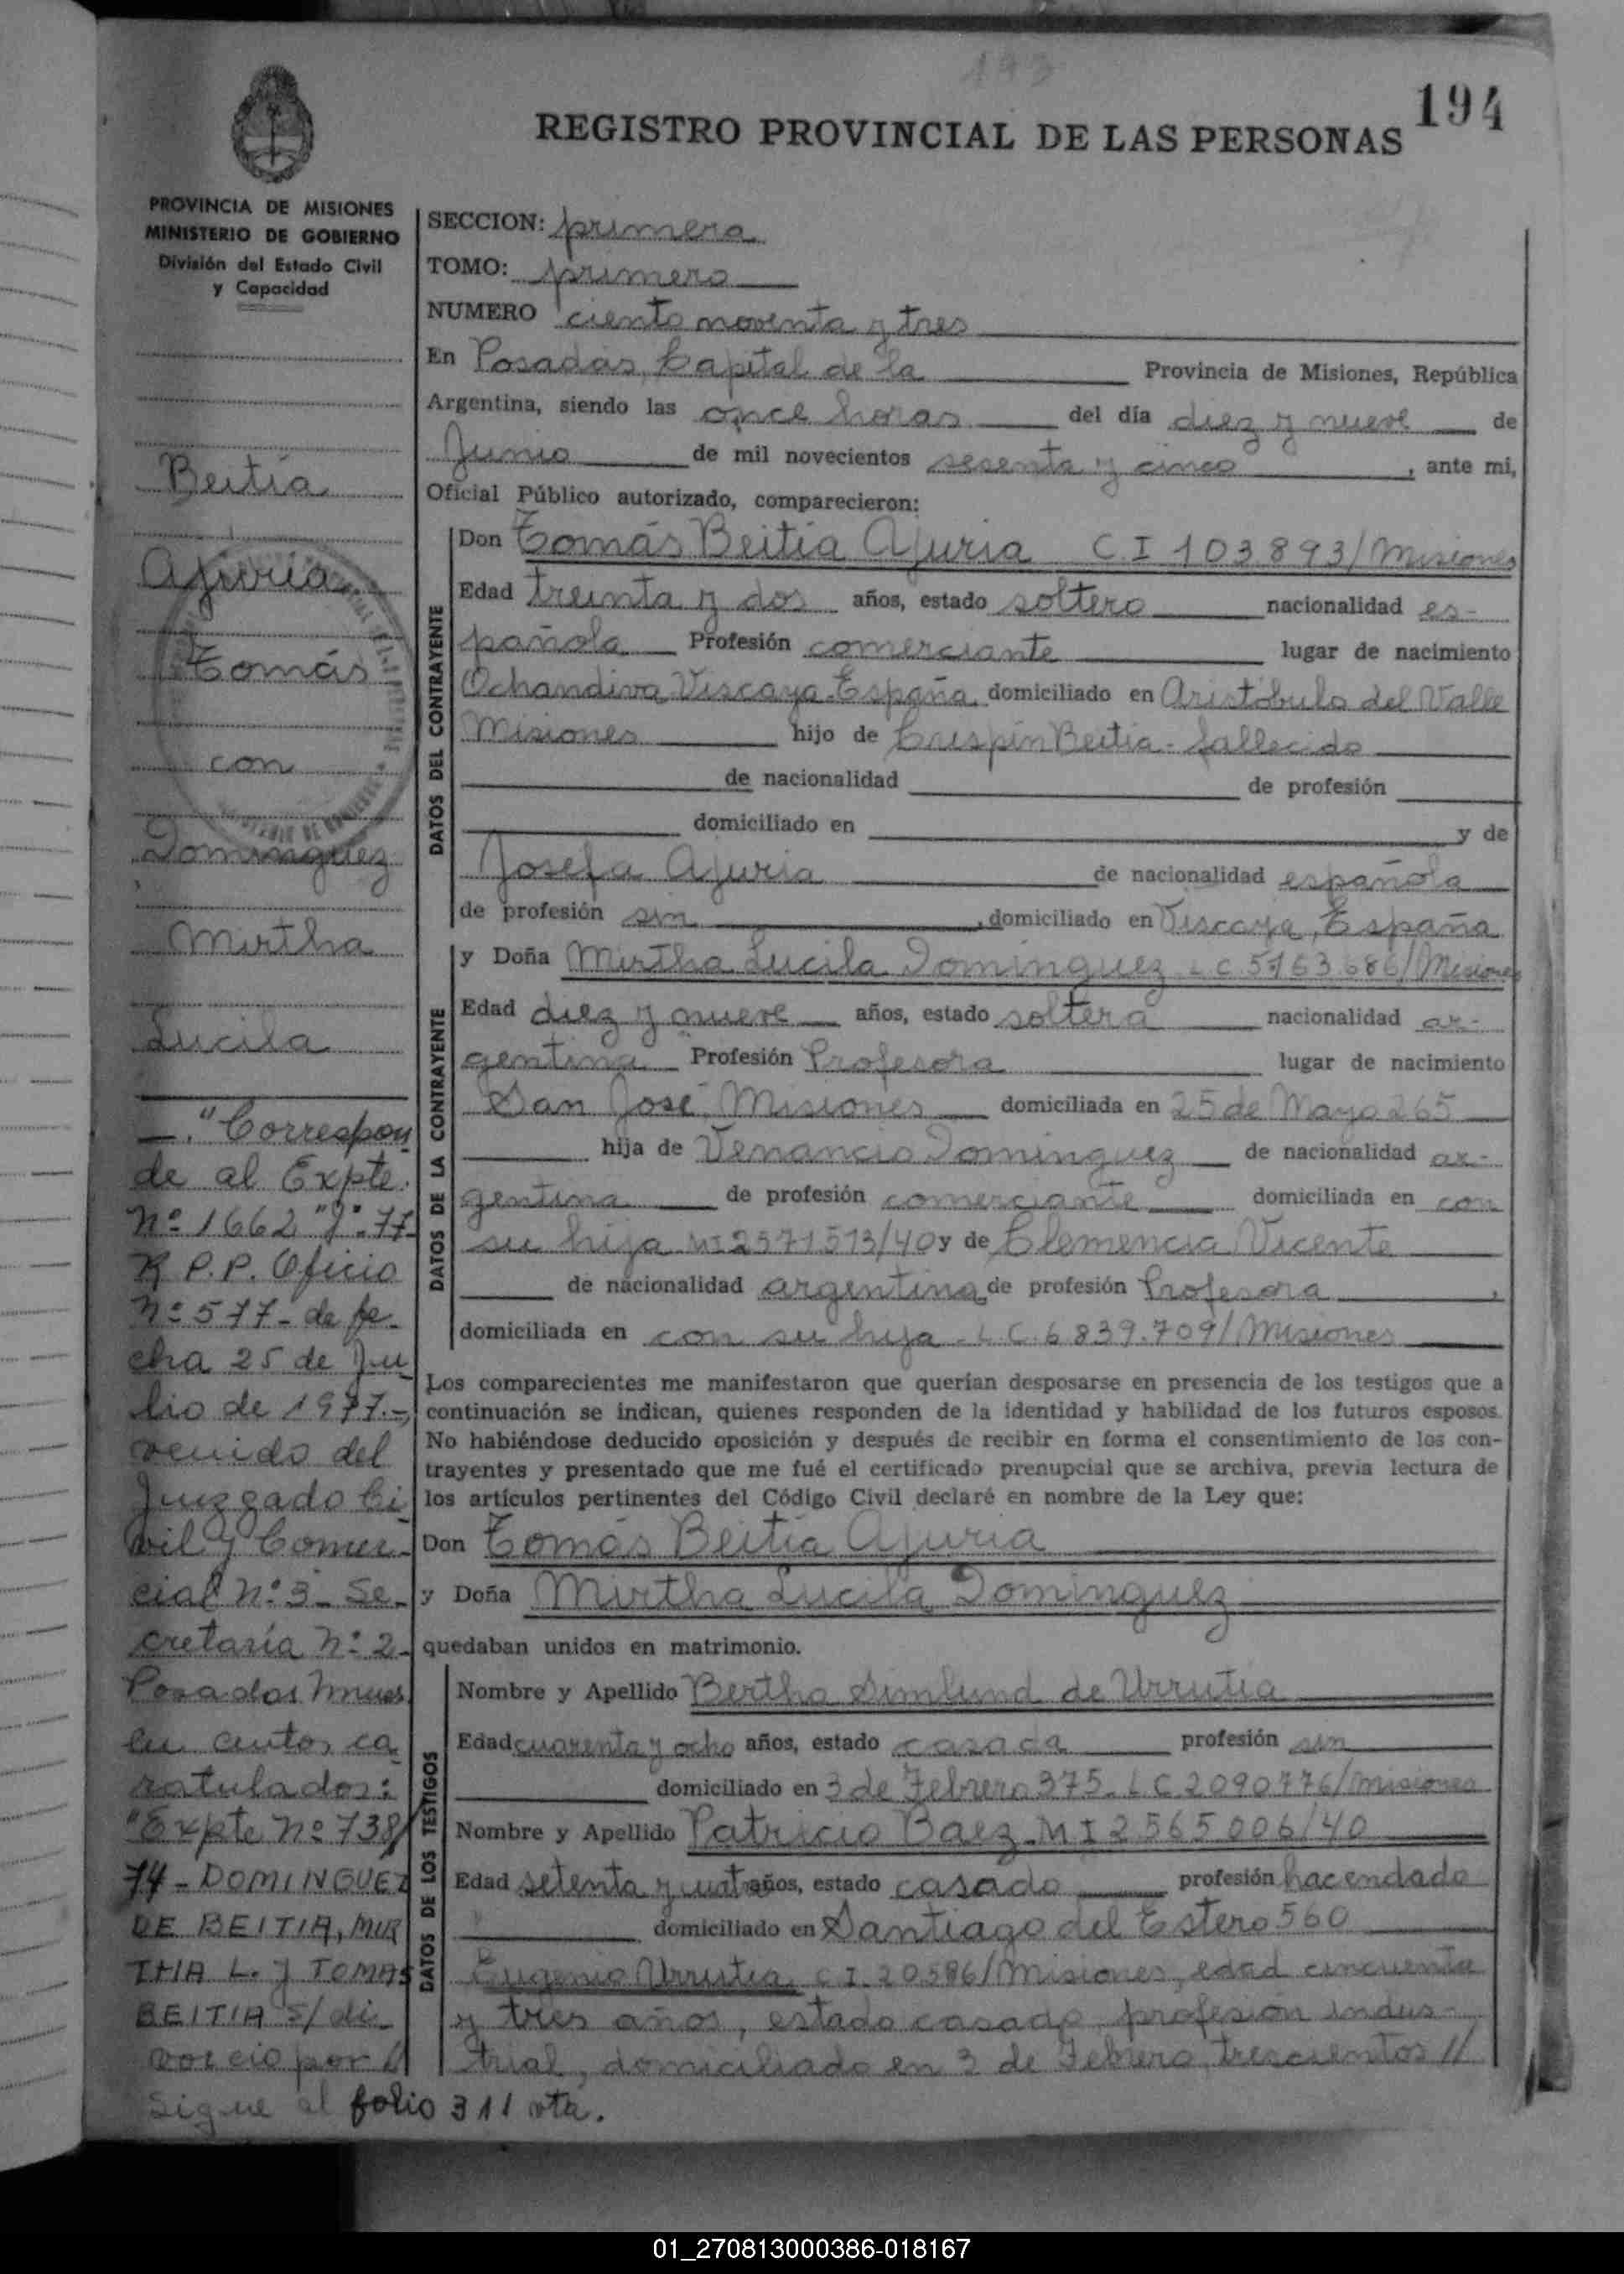 193
194
REGISTRO PROVINCIAL DE LAS PERSONAS
PROVINCIA DE MISIONES
MINISTERIO DE GOBIERNO
División del Estado Civil
y Capacidad
SECCION: primera
TOMO: primero
NUMERO ciento noventa y tres
En Posadas, Capital de la Provincia de Misiones, República
Argentina, siendo las once horas del día diez y nueve de
Junio de mil novecientos sesenta y cinco, ante mi,
Oficial Público autorizado, comparecieron:
DATOS DEL CONTRAYENTE
Don Tomás Beitia Ajuria C.I 103.893/Misiones
Edad treinta y dos años, estado soltero nacionalidad es-
pañola Profesión comerciante lugar de nacimiento
Ochandiva Viscaya-España, domiciliado en Aristóbulo del Valle
Misiones hijo de Crispín Beitia - fallecido
de nacionalidad de profesión
domiciliado en y de
Josefa Ajuria de nacionalidad española
de profesión sin, domiciliado en Viscaya, España
DATOS DE LA CONTRAYENTE
y Doña Mirtha Lucila Dominguez L C 5763.686/Misiones
Edad diez y nueve años, estado soltera nacionalidad ar-
gentina Profesión Profesora lugar de nacimiento
San José, Misiones domiciliada en 25 de Mayo 265
hija de Venancio Dominguez de nacionalidad ar-
gentina de profesión comerciante domiciliada en con
su hija MI 2571513/40 y de Clemencia Vicente
de nacionalidad argentina de profesión Profesora,
domiciliada en con su hija - L.C. 6839.709/Misiones
Los comparecientes me manifestaron que querían desposarse en presencia de los testigos que a
continuación se indican, quienes responden de la identidad y habilidad de los futuros esposos.
No habiéndose deducido oposición y después de recibir en forma el consentimiento de los con-
trayentes y presentado que me fué el certificado prenupcial que se archiva, previa lectura de
los artículos pertinentes del Código Civil declaré en nombre de la Ley que:
Don Tomás Beitia Ajuria
y Doña Mirtha Lucila Dominguez
quedaban unidos en matrimonio.
DATOS DE LOS TESTIGOS
Nombre y Apellido Bertha Simlund de Urrutia
Edad cuarenta y ocho años, estado casada profesión sin
domiciliado en 3 de Febrero 375. L C 2090776/Misiones
Nombre y Apellido Patricio Baez. M I 2565006/40
Edad setenta y cuatro años, estado casado profesión hacendado
domiciliado en Santiago del Estero 560
Eugenio Urrutia, C I. 20586/Misiones, edad cincuenta
y tres años, estado casado, profesión indus-
trial, domiciliado en 3 de Febrero, trescientos //
Beitía
Ajuria
Tomás
con
Dominguez
Mirtha
Lucila
"Correspon
de al Expte.
Nº 1662 "J"-77-
R P.P. Oficio
Nº 577- de fe-
cha 25 de Ju
lio de 1977.-
venido del
Juzgado Ci
vil y Comer-
cial Nº 3- Se-
cretaría Nº 2-
Posadas Mnes
en autos ca
ratulados:
"Expte Nº 738/
74- DOMINGUEZ
DE BEITIA, MIR
THA L. y TOMAS
BEITIA s/ di-
vorcio por //
Sigue al folio 311 vta.
01_270813000386-018167